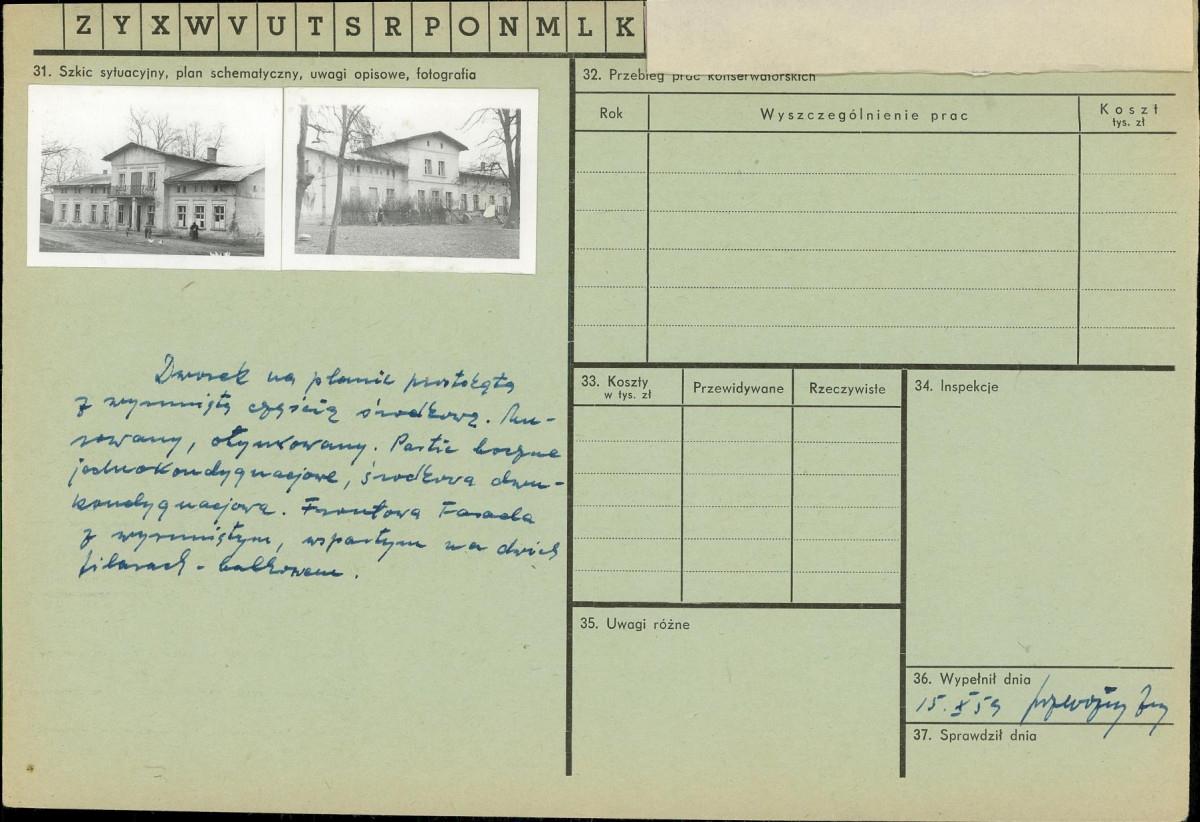 Z Y X W V U T S R P O N M L K
31. Szkic sytuacyjny, plan schematyczny, uwagi opisowe, fotografia
Dworek na planie prostokąta
z wysuniętą częścią środkową. Mu-
rowany, otynkowany. Partie boczne
jednokondygnacjowe, środkowa dwu-
kondygnacjowa. Frontowa Fasada
z wysuniętym, wspartym na dwóch
filarach - balkonem.
32. Przebieg prac konserwatorskich
Rok Wyszczególnienie prac Koszt
tys. zł
33. Koszty Przewidywane Rzeczywiste
w tys. zł
34. Inspekcje
35. Uwagi różne
36. Wypełnił dnia
15. X 59
37. Sprawdził dnia